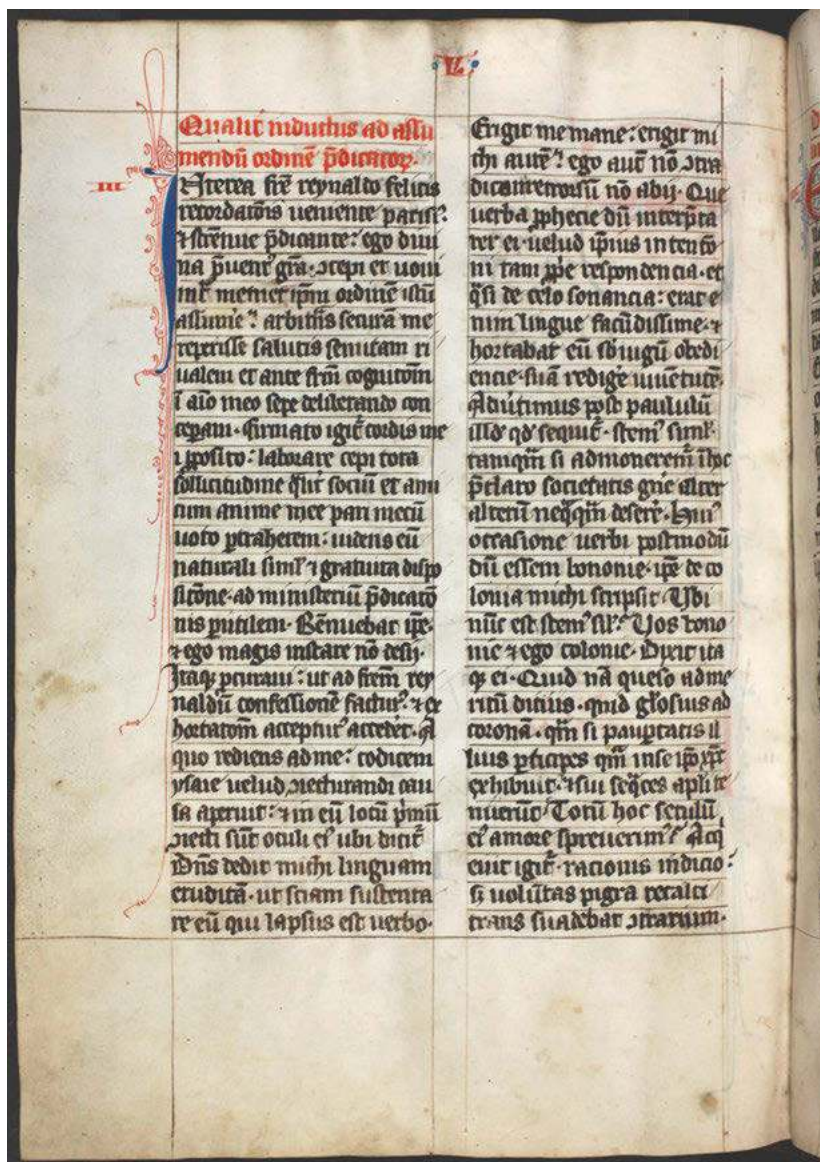 L
Qualit inductus ad assu
mendū ordinē p̄dicatoꝝ.
III
Nterea frē reynaldo felicis
recordatōis ueniente parisiꝰ.
⁊ strenue p̄dicante: ego diui
na p̄uentꝰ grā. ↄcepi et uoui
īt memet ip̄m ordinē istū
assumē? arbitās securā me
repperisse salutis semitam
ualem et ante frm̄ cognitōm̄
ī aīo meo sepe deliberando con
ceperam. Firmato igit̄ cordis me
i ꝓposito: laborare cepi tota
sollicitudine qlit̄ sociū et ami
cum anime mee pari mecū
uoto ꝑtraherem: uidens eū
naturali siml̄ ⁊ gratuita dispo
sicōne. ad ministeriū p̄dicatō
nis ꝑutilem. Rēnuebat ip̄e.
⁊ ego magis instare nō desij.
Itaqꝫ ꝓcuraui: ut ad frēm rey
naldū confessionē facturꝰ. ⁊ ex
hortatōm̄ accepturꝰ accedēt. A
quo rediens ad me: codicem
ysaie uelud ↄiecturandi cau
sa aperuit: ⁊ in eū locū p̄mū
ↄiecti sūt oculi eiꝰ ubi dicit̄
Dn̄s dedit michi linguam
eruditā. ut sciam sustenta
re eū qui lapsus est uerbo.
Erigit me mane: erigit mi
chi aurē? ego autē nō ↄtra
dicam retrorsū nō abij. Que
uerba ꝓphecie dū interp̄ta
rer ei. uelud ip̄ius intencō
ni tam ꝓp̄e respondencia. et
q̄si de celo sonancia: erat e
nim lingue facūdissime. ⁊
hortabar eū sb̄ iugū obedi
encie. suā redigē iuuentutē.
Aduertimus post paululū
illd̄ qd̄ sequit̄. stemꝰ siml̄.
tamqm̄ si admoneremꝰ ī hoc
p̄claro societatis gn̄e alter
alterū neq̄qm̄ deserē. Huiꝰ
occasione uerbi postmodū
dū essem bononie. ip̄e de co
lonia michi scripsit. Vbi
nūc est stemꝰ sil̄? Vos bono
nie ⁊ ego colonie. Dixit ita
qꝫ ei. Quid nā queso ad me
ritū dicius. quid gl̄osius ad
coronā. qm̄ si pauꝑtatis il
lius ꝑticipes qm̄ in se ip̄o xp̄c
exhibuit. ⁊ sui seq̄ces apl̄i te
nuerūt. Totū hoc seculū
eiꝰ amore spreuerimꝰ? Acq
euit igit̄. racionis iudicio:
sꝫ uolūtas pigra recalci
trans suadebat ↄtrarium.